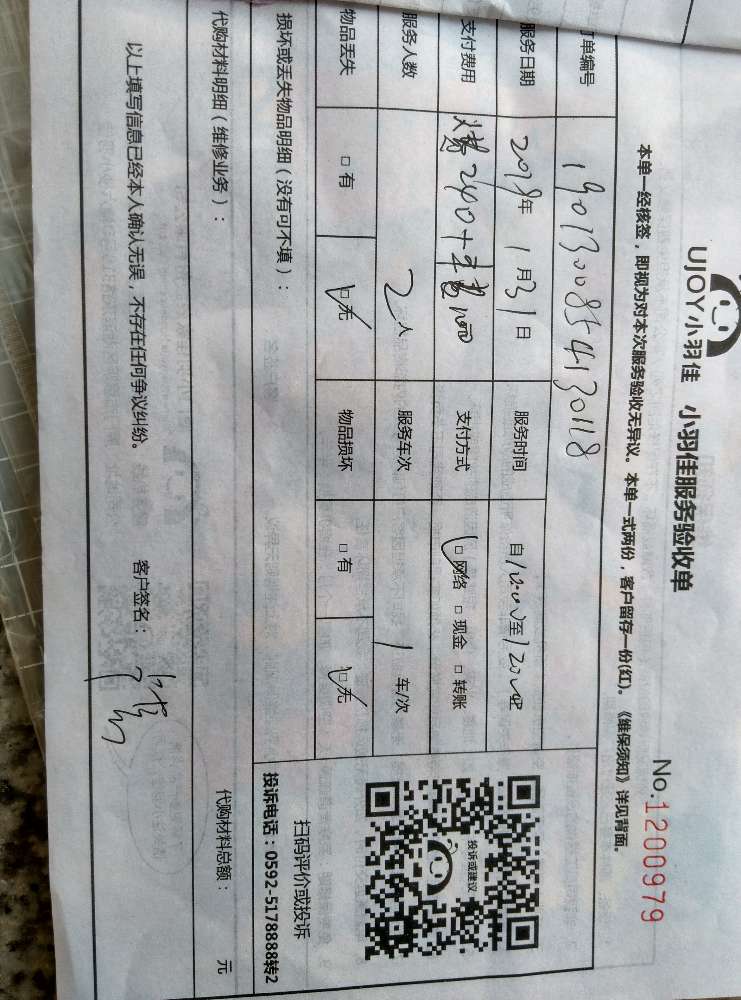 UJOY小羽佳 小羽佳服务验收单
No.1200979
本单一经核签，即视为对本次服务验收无异议。本单一式两份，客户留存一份(红)。《维保须知》详见背面。
订单编号 1901300854130118
服务日期 2019年1月31日 服务时间 自10:00至12:00
支付费用 支付方式 ☑网络 □现金 □转账
服务人数 2人 服务车次 1车/次
物品丢失 □有 ☑无 物品损坏 □有 ☑无
损坏或丢失物品明细（没有可不填）：
投诉或建议
扫码评价或投诉
投诉电话：0592-5178888转2
代购材料明细（维修业务）： 代购材料总额： 元
以上填写信息已经本人确认无误，不存在任何争议纠纷。 客户签名：